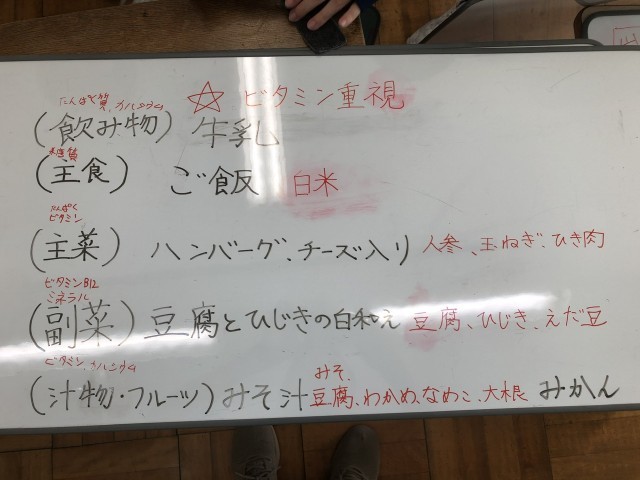 たんぱく質、カルシウム
☆ ビタミン重視
(飲み物) 牛乳
糖質
(主食) ご飯 白米
たんぱく
ビタミン
(主菜) ハンバーグ、チーズ入り 人参、玉ねぎ、ひき肉
ビタミンB12
ミネラル
(副菜) 豆腐とひじきの白和え 豆腐、ひじき、えだ豆
ビタミン、カルシウム
みそ、
(汁物・フルーツ) みそ汁 豆腐、わかめ、なめこ、大根 みかん